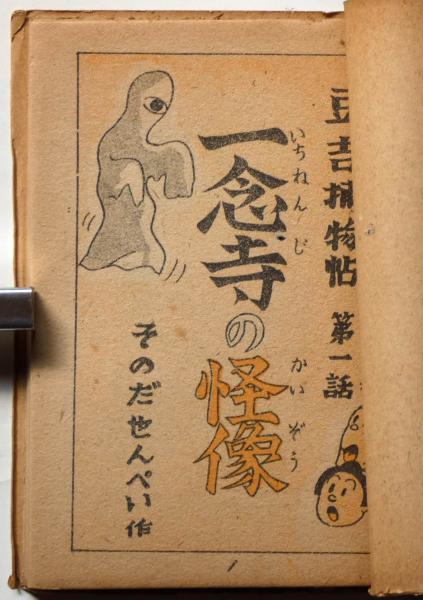 豆吉捕物帖 第一話
一念寺の怪像
いちねんじ
かいぞう
そのだせんぺい作
1